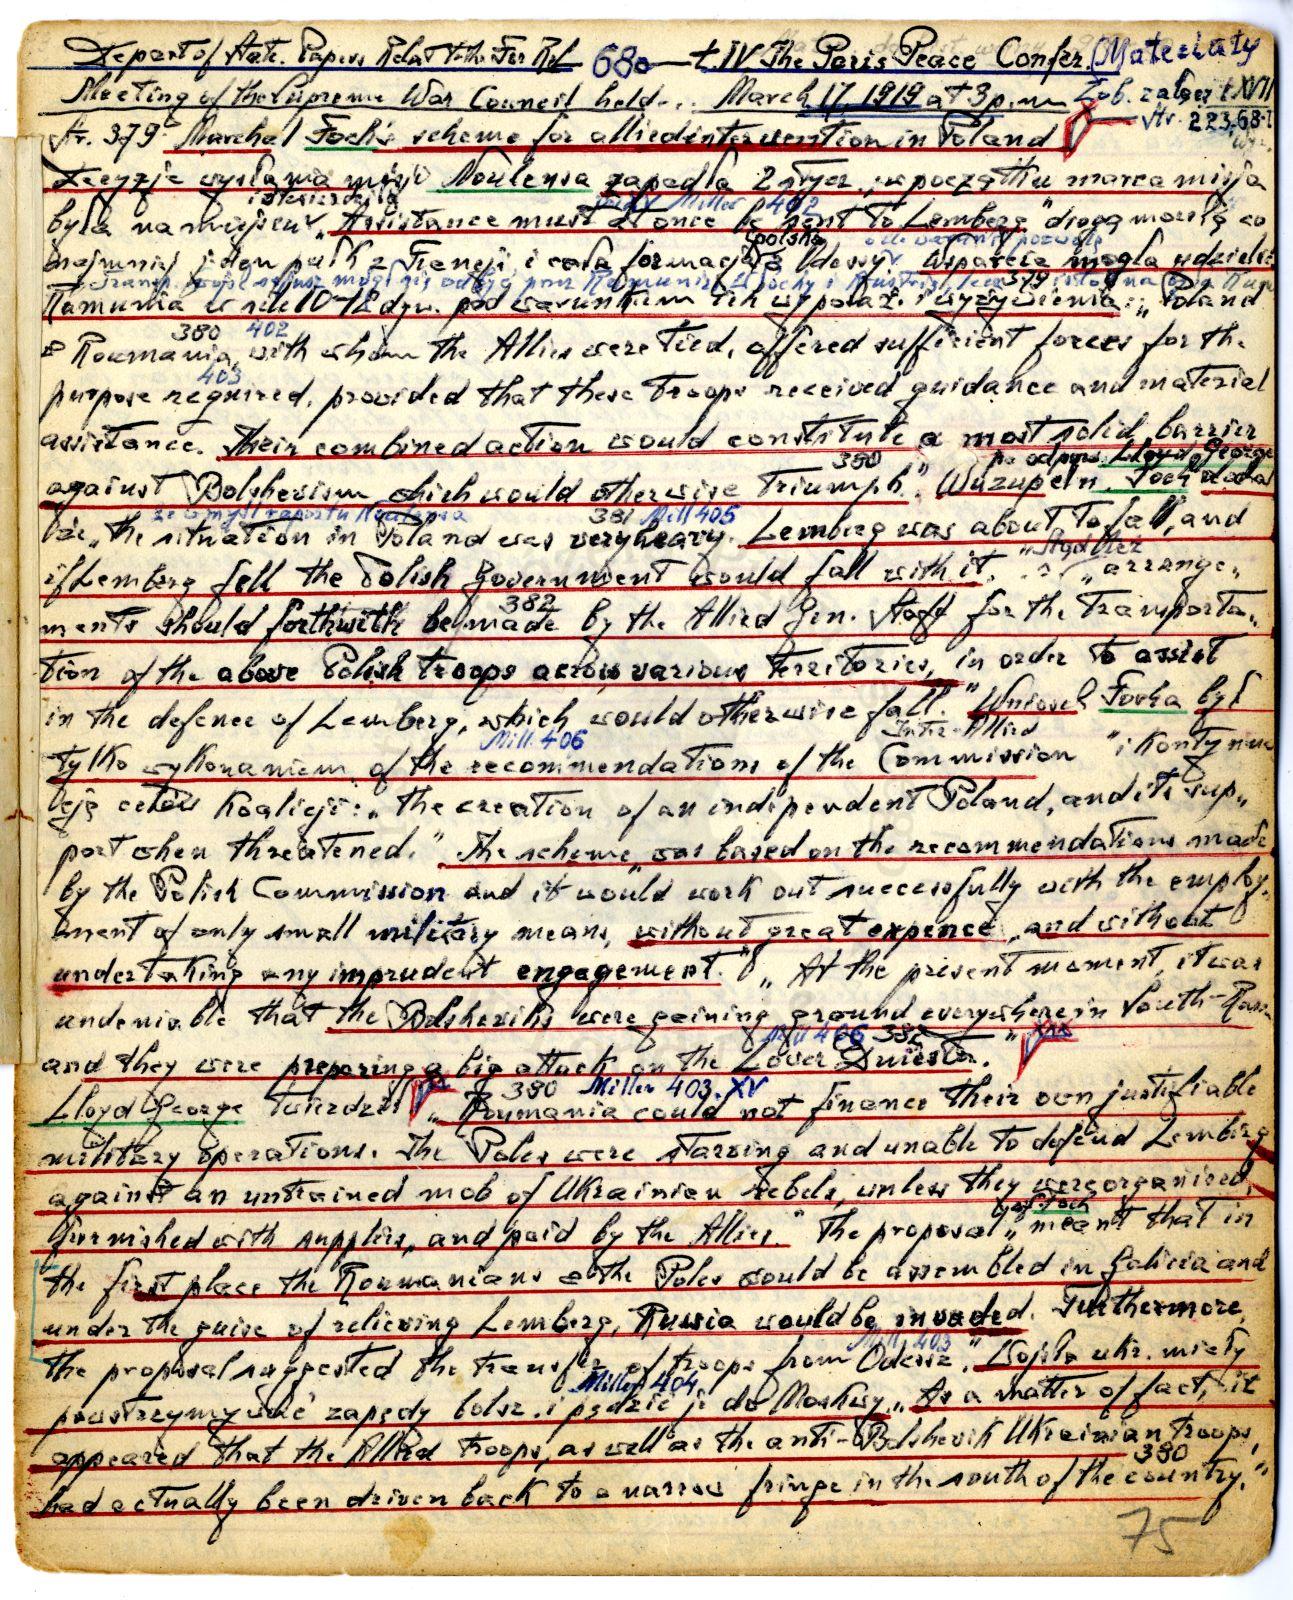 Depart of State. Papers Relat to the For Rel 680 t. IV The Paris Peace Confer. (Materiały
Meeting of the Supreme War Council held... March 17, 1919 at 3 p.m. Zob. załącz t XVII
Str. 379 Marchal Foch's scheme for allied intervention in Poland str. 223,68-1
Decyzje wysłania misji Noulensa zapadła 2 stycz., w początku marca misja
była na miejscu i stwierdziła Miller 402 "Assistance must at once be sent to Lemberg" drogą morską co
najmniej jeden pułk z Francji i cała formacja polska z Odessy o ile warunki pozwolą. Wsparcia mogła udzielić
Transp. wojsk mógł się odbyć przez Rumunię, Włochy i Austrię, lecz 379
Rumunia w sile 10-12 dyw. pod warunkiem ich wyposaż. i wyżywienia: "Poland
380 402
& Roumania, with whom the Allies were tied, offered sufficient forces for the
403
purpose required, provided that these troops received guidance and material
assistance. Their combined action would constitute a most solid barrier
380 po odpow. Lloyd George
against Bolshevism which would otherwise triumph." W uzupełn. Foch dodał
że w myśl raportu Noulensa 381 Mill 405
że "the situation in Poland was very heavy. Lemberg was about to fall, and
if Lemberg fell the Polish Government would fall with it. "Stąd też "arrange-
382
ments should forthwith be made by the Allied Gen. Staff for the transporta-
tion of the above Polish troops across various territories, in order to assist
in the defence of Lemberg, which would otherwise fall." Wniosek Focha był
Mill. 406 Inter-Allied
tylko wykonaniem "of the recommendations of the Commission" i kontynua
cją celów Koalicji: "the creation of an independent Poland, and its sup-
port when threatened." "The scheme was based on the recommendations made
by the Polish Commission and it would work out successfully with the employ-
ment of only small military means, without great expence, and without
undertaking any imprudent engagement." "At the present moment, it was
undeniable that the Bolsheviks were gaining ground everywhere in South-Russ.
Mill 406 382
and they were preparing a big attack on the Lower Dniestr."
380 Miller 403. XV
Lloyd George twierdził "Roumania could not finance their own justifiable
military operations. The Poles were starving and unable to defend Lemberg
against an untrained mob of Ukrainian rebels, unless they were organised,
gen. Foch
furnished with supplies, and paid by the Allies." The proposal "meant that in
the first place the Roumanians & the Poles would be assembled in Galicia and
under the guise of relieving Lemberg, Russia would be invaded. Furthermore,
Mill. 403
the proposal suggested the transfer of troops from Odessa." Wojska ukr. miały
Miller 404
powstrzymywać zapędy bolsz. i pędzić je do Moskwy. "As a matter of fact, it
appeared that the Allied troops, as well as the anti-Bolshevik Ukrainian troops,
380
had actually been driven back to a narrow fringe in the south of the country."
75